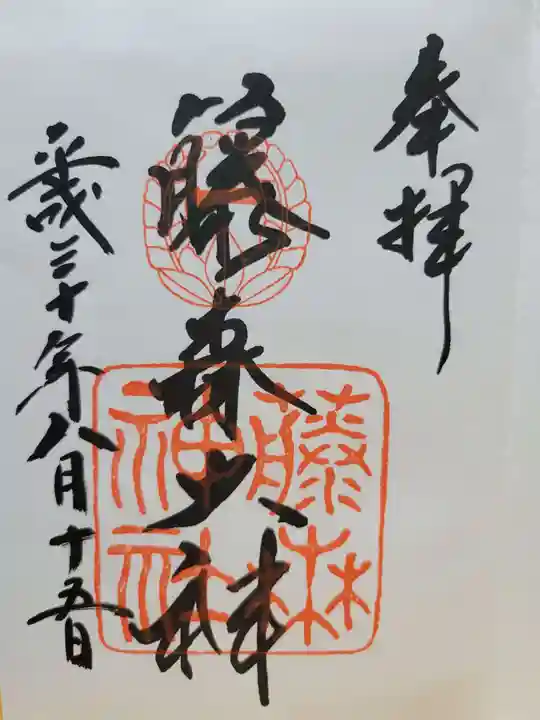 奉拝
藤森大神
平成三十年八月十五日
藤森
神社